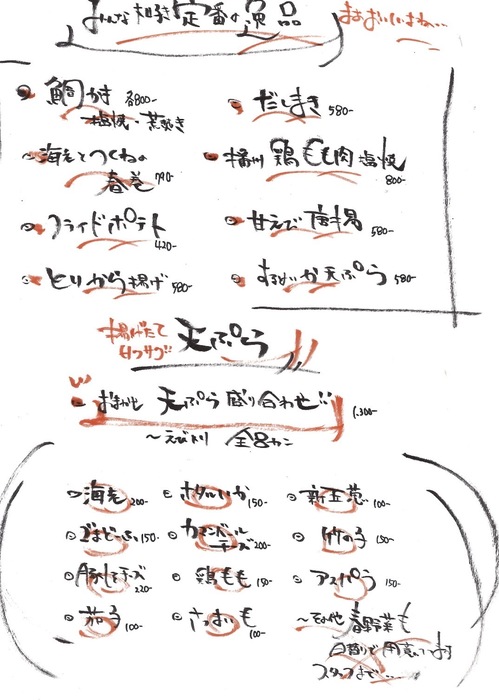 みんな相談 定番の逸品
まあおいしいよね…
鯛かま 各800-
塩焼・荒炊き
だしまき 580-
海老とつくねの
春巻 790-
播州 鶏もも肉 塩焼 800-
フライドポテト 420-
甘えび 唐揚 580-
とりから揚げ 580-
するめいか天ぷら 580-
揚げたて
サクサク!! 天ぷら
おまかせ 天ぷら盛り合わせ!! 1,300-
〜えび入り 全8カン
海老 200-
ホタルいか 150-
新玉葱 100-
ごまどーふ 150-
カマンベール
チーズ 200-
竹の子 150-
豚しそチーズ 220-
鶏もも 150-
アスパラ 150-
茄子 100-
さつまいも 100-
〜その他 春野菜も
日替りで用意しています
スタッフまで…